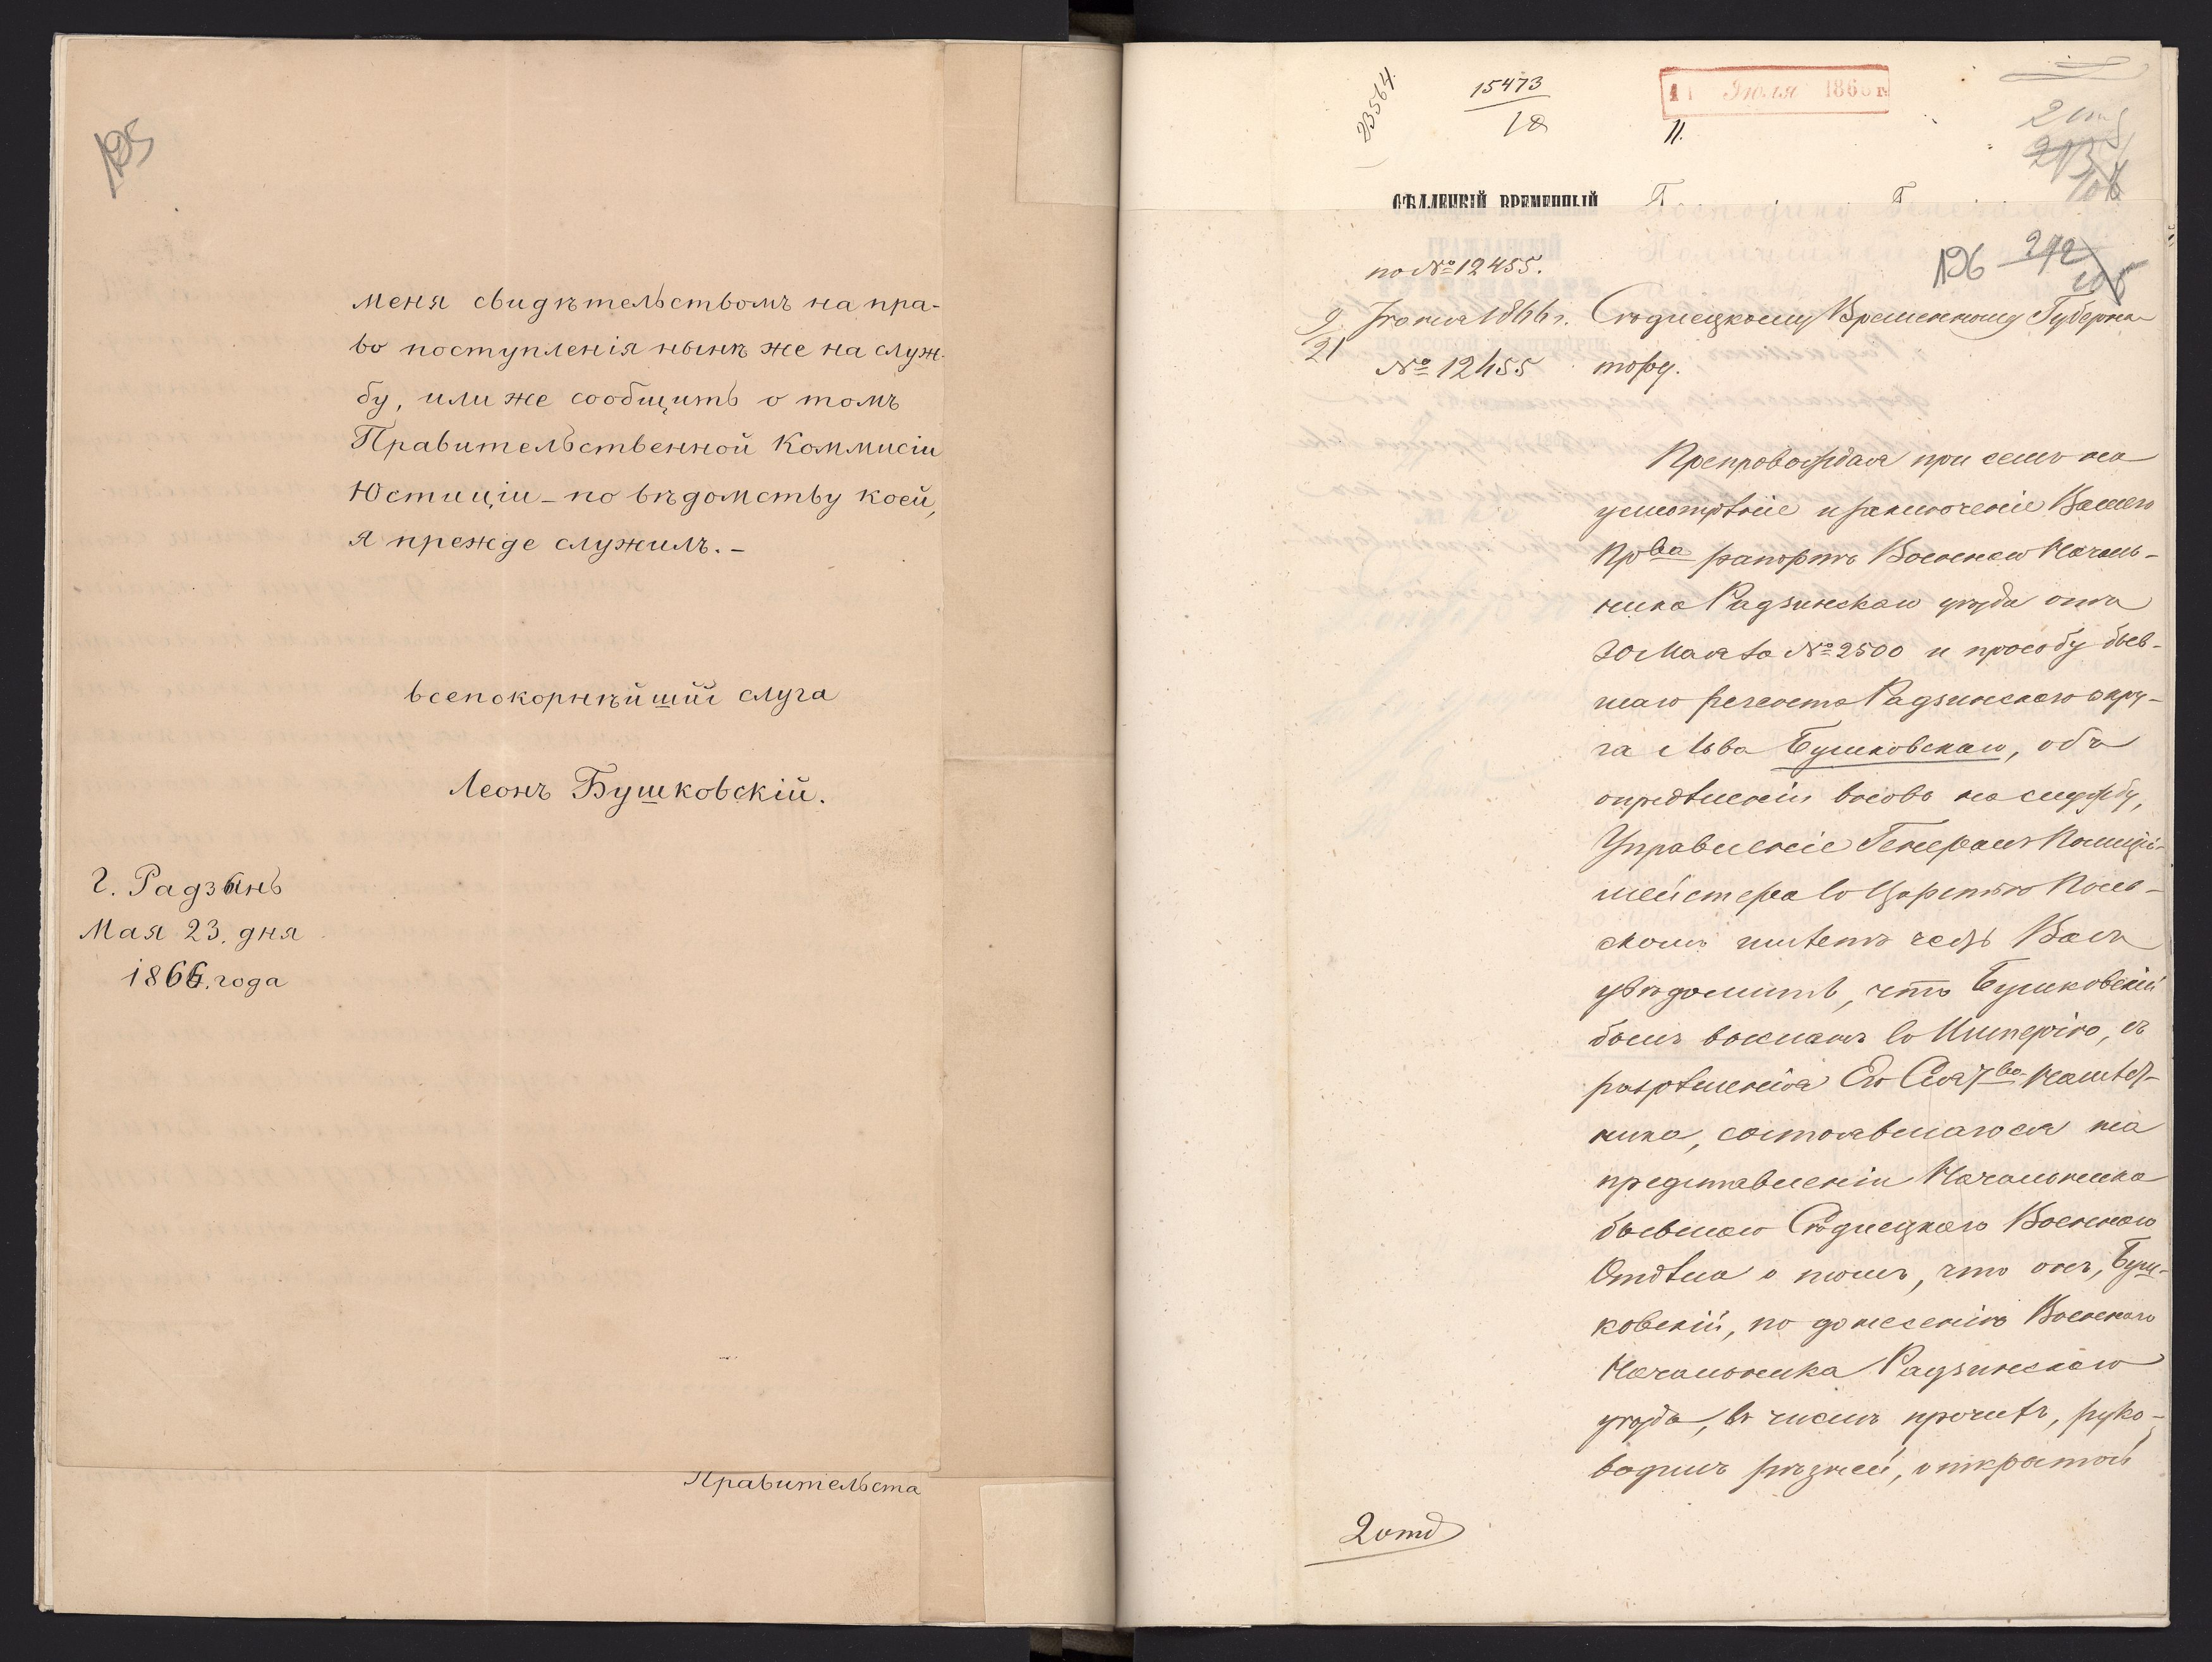 125
меня свидѣтельствомъ на пра-
во поступленія нынѣ же на служ-
бу, или же сообщить о томъ
Правительственной Коммисіи
Юстиціи – по вѣдомству коей,
я прежде служилъ. –
всепокорнѣйшій слуга
Леонъ Бушковскій.
г. Радзынь
Мая 23. дня
1866. года
Правительста
23564.
15473
11 Іюля 1866 г.
11.
СѢДЛЕЦКІЙ ВРЕМЕННЫЙ
ГРАЖДАНСКІЙ
по № 12455.
126
212
9/21 Іюня 1866 г.
№ 12455
Сѣдлецкому Временному Губерна-
тору.
Препровождая при семъ на
усмотрѣніе и заключеніе Вашего
Пр-ва рапортъ Военнаго Началь-
ника Радзинскаго уѣзда отъ
30 Мая за № 2500 и просьбу быв-
шаго регента Радзинскаго окру-
га Льва Бушковскаго, объ
опредѣленіи вновь на службу,
Управленіе Генералъ Полиціи-
мейстера въ Царствѣ Поль-
скомъ имѣетъ честь Васъ
увѣдомить, что Бушковскій
былъ высланъ въ Имперію, съ
разрѣшенія Его Сія-ва Намѣст-
ника, состоявшагося на
представленіи Начальника
бывшаго Сѣдлецкаго Военнаго
Отдѣла о томъ, что онъ, Буш-
ковскій, по донесенію Военнаго
Начальника Радзинскаго
уѣзда, въ числѣ прочихъ, руко-
водилъ рѣзней, открытой
2 отд